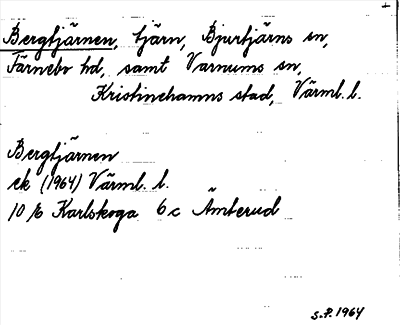 Bergtjärnen, tjärn, Bjurtjärns sn,
Färnebo hd, samt Varnums sn,
Kristinehamns stad, Värml. l.
Bergtjärnen
ek (1964) Värml. l.
10 E Karlskoga 6 c Ämterud
S.P. 1964